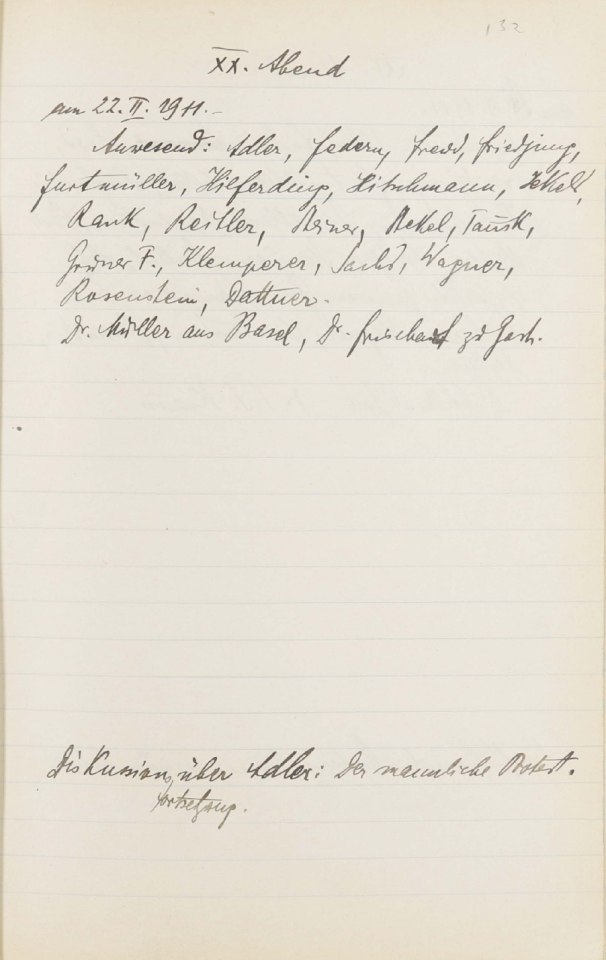 132
XX. Abend
am 22. II. 1911.-
Anwesend: Adler, Federn, Freud, Friedjung,
Furtmüller, Hilferding, Hitschmann, Jekels,
Rank, Reitler, Steiner, Stekel, Tausk,
Grüner F., Klemperer, Sachs, Wagner,
Rosenstein, Dattner.
Dr. Müller aus Basel, Dr. Frischauf zu Gast.
Diskussion über Adler: Der männliche Protest.
Fortsetzung.